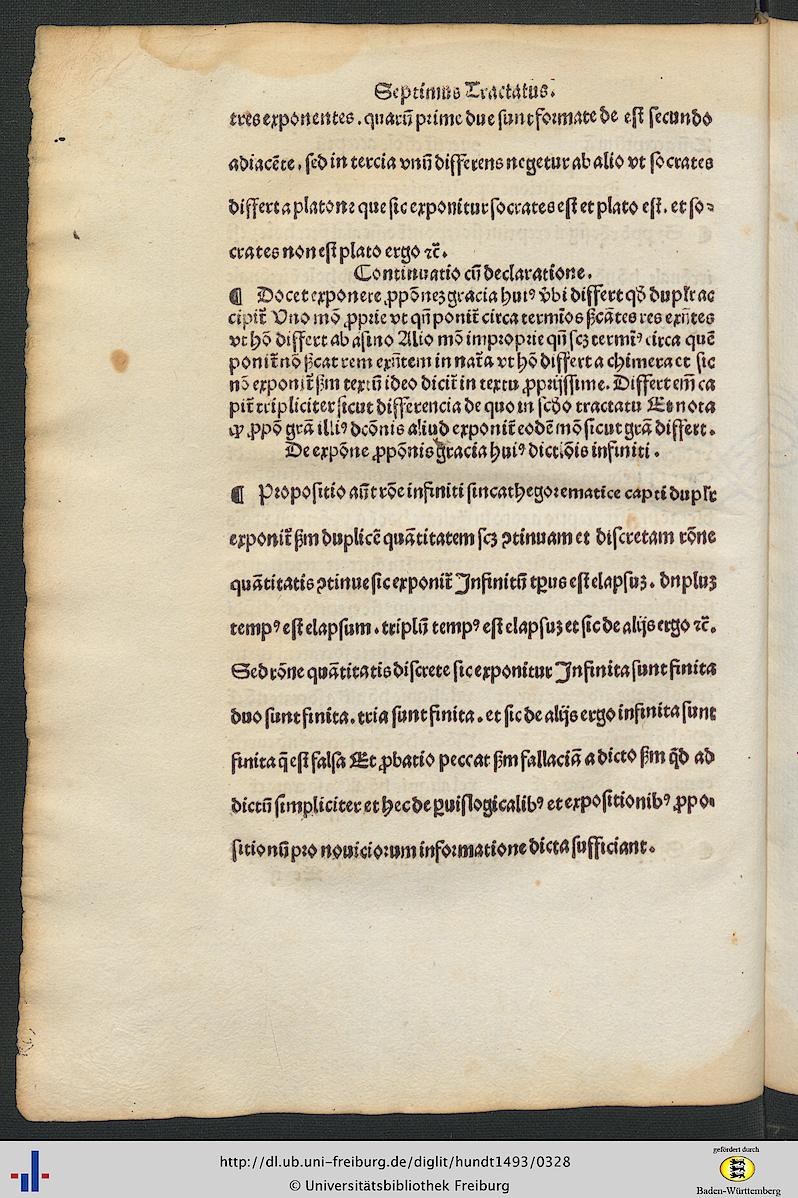 Septimus Tractatus.
tres exponentes. quarū prime due sunt formate de est secundo
adiacēte. sed in tercia vnū differens negetur ab alio vt socrates
differt a platone que sic exponitur socrates est et plato est. et so-
crates non est plato ergo ⁊c̄.
Continuatio cū declaratione.
¶ Docet exponere ꝓpōnez gracia huiꝰ vbi differt qđ duplr ac
cipit̄ Uno mō ꝓprie vt qn̄ ponit̄ circa termīos ßcātes res exn̄tes
vt hō differt ab asino Alio mō improprie qn̄ scz termīꝰ circa quē
ponit̄ nō ßcat rem exn̄tem in nat̄a vt hō differt a chimera et sic
nō exponit̄ ßm textū ideo dicit̄ in textu ꝓprijssime. Differt em̄ ca
pit̄ tripliciter sicut differencia de quo in scđo tractatu Et nota
ꝙ ꝓpō grā illiꝰ dcōnis aliud exponit̄ eodē mō sicut grā differt.
De expōne ꝓpōnis gracia huiꝰ dictiōis infiniti.
¶ Propositio aūt rōe infiniti sincathegorematice capti duplr
exponit̄ ßm duplicē quātitatem scz ꝯtinuam et discretam rōne
quātitatis ꝯtinue sic exponit̄ Infinitū tp̄us est elapsuz. dupluz
tempꝰ est elapsum. triplū tempꝰ est elapsuz et sic de alijs ergo ⁊c̄.
Sed rōne quātitatis discrete sic exponitur Infinita sunt finita
duo sunt finita. tria sunt finita. et sic de alijs ergo infinita sunt
finita q̄ est falsa Et ꝓbatio peccat ßm fallaciā a dicto ßm qđ ad
dictū simpliciter et hec de ꝑuis logicalibꝰ et expositionibꝰ ꝓpo-
sitionū pro nouiciorum informatione dicta sufficiant.
http://dl.ub.uni-freiburg.de/diglit/hundt1493/0328
© Universitätsbibliothek Freiburg
gefördert durch
Baden-Württemberg